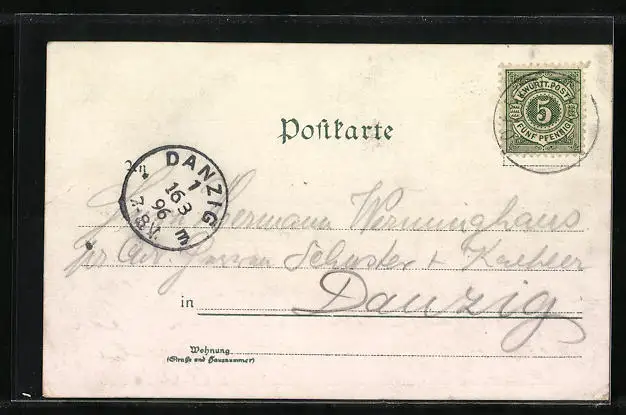 K.WÜRTT.POST
5
FÜNF PFENNIG
Postkarte
An
DANZIG
1
16 3
96
7-8V
Herrn Hermann Werninghaus
pr Adr. Herren Schuster +
in Danzig
Wohnung
(Straße und Hausnummer)